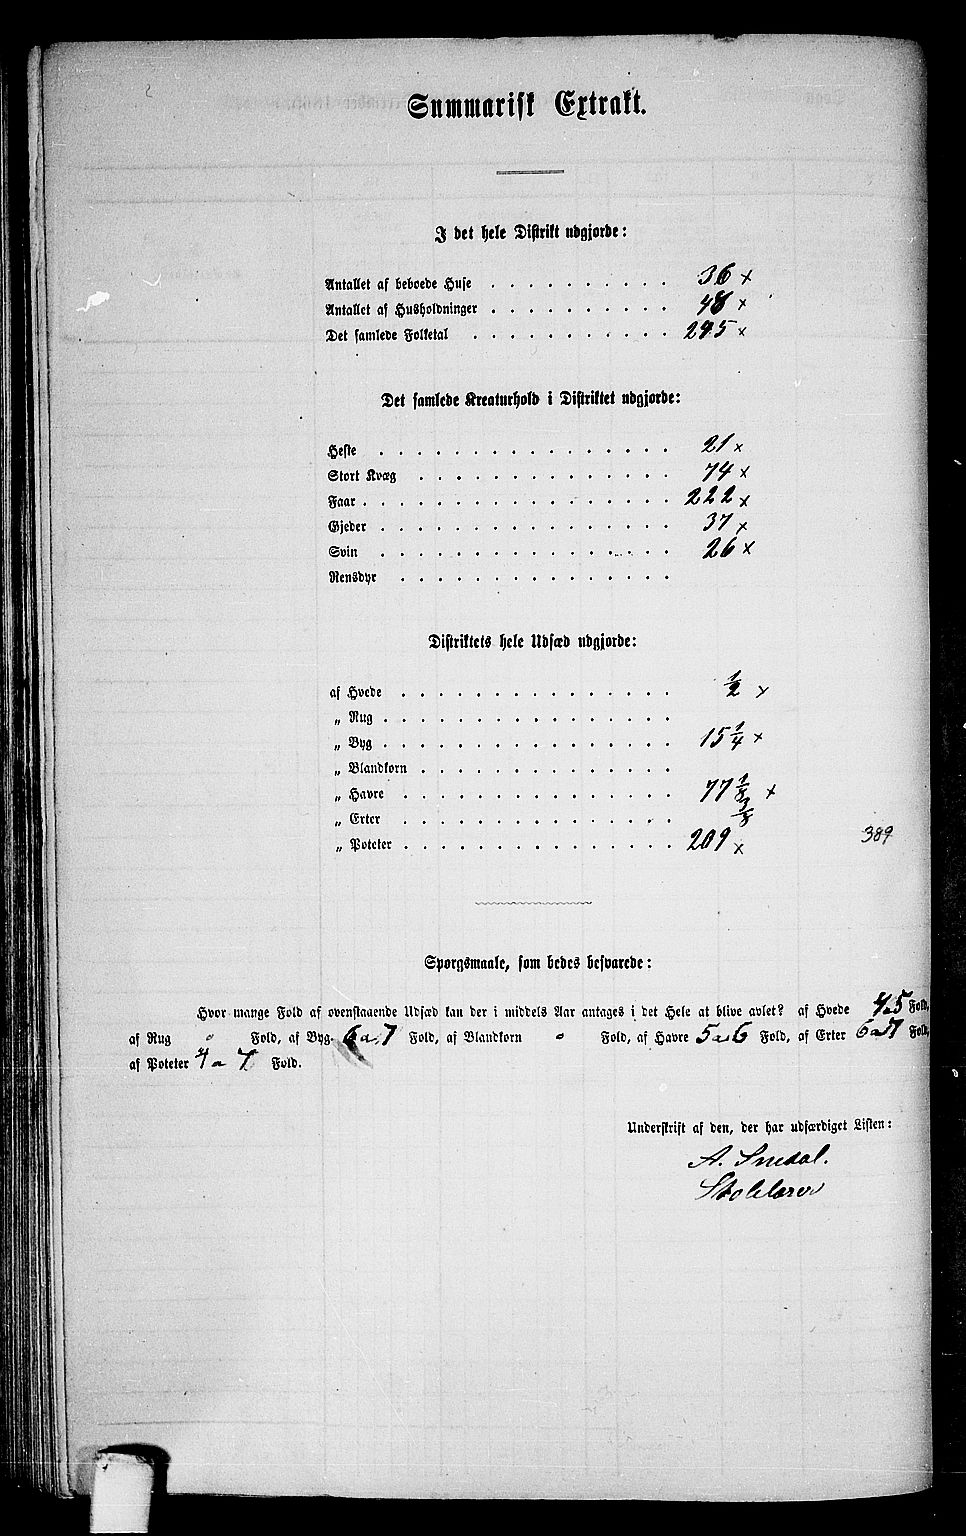 Summarisk Extrakt.
I det hele Distrikt udgjorde:
Antallet af beboede Huse . . . . . . . . . . 36 x
Antallet af Husholdninger . . . . . . . . . . 48 x
Det samlede Folketal . . . . . . . . . . . 295 x
Det samlede Kreaturhold i Distriktet udgjorde:
Heste . . . . . . . . . . . . . . . 21 x
Stort Kvæg . . . . . . . . . . . . . 74 x
Faar . . . . . . . . . . . . . . . . 222 x
Gjeder . . . . . . . . . . . . . . . 37 x
Svin . . . . . . . . . . . . . . . 26 x
Rensdyr . . . . . . . . . . . . . .
Distriktets hele Udsæd udgjorde:
af Hvede . . . . . . . . . . . . . . 1/2 x
„ Rug . . . . . . . . . . . . . . .
„ Byg . . . . . . . . . . . . . . . 15 1/4 x
„ Blandkorn . . . . . . . . . . . . .
„ Havre . . . . . . . . . . . . . . 77 1/8 x
„ Erter . . . . . . . . . . . . . . 3/8
„ Poteter . . . . . . . . . . . . . . 209 x 389
Spørgsmaale, som bedes besvarede:
Hvor mange Fold af ovenstaaende Udsæd kan der i middels Aar antages i det Hele at blive avlet? af Hvede 4 a 5 Fold,
af Rug o Fold, af Byg 6 a 7 Fold, af Blandkorn o Fold, af Havre 5 a 6 Fold, af Erter 6 a 7 Fold,
af Poteter 4 a 7 Fold.
Underskrift af den, der har udfærdiget Listen:
A. Snedal.
Skolelærer